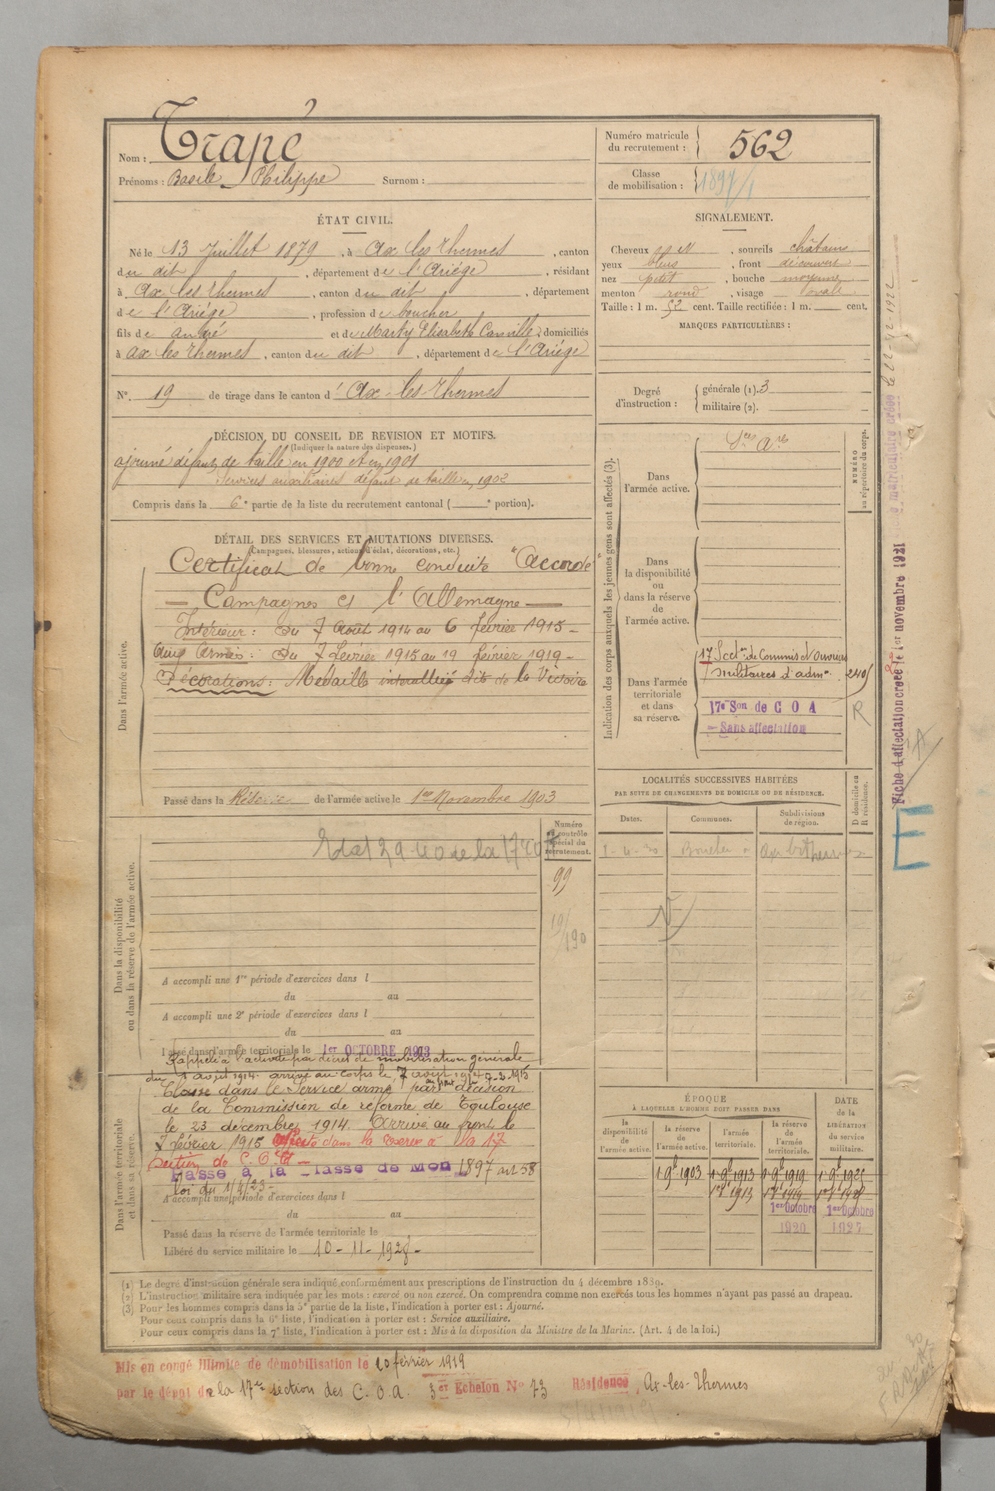 Nom : Trapé
Prénoms : Basile Philippe Surnom :
Numéro matricule du recrutement : 562
Classe de mobilisation : 1897
ÉTAT CIVIL.
Né le 13 Juillet 1879, à Ax les Thermes, canton
du dit, département de l'Ariège, résidant
à Ax les Thermes, canton du dit, département
de l'Ariège, profession de boucher
fils de André et de Marty Elisabeth, domiciliés
à Ax les Thermes, canton du dit, département de l'Ariège
N° 19 de tirage dans le canton d' Ax-les-Thermes
SIGNALEMENT.
Cheveux, sourcils châtains
yeux bleus, front découvert
nez petit, bouche moyenne
menton rond, visage ovale
Taille : 1 m. 52 cent. Taille rectifiée : 1 m. cent.
MARQUES PARTICULIÈRES :
Degré d'instruction : générale (1). 3
militaire (2).
DÉCISION DU CONSEIL DE REVISION ET MOTIFS.
(Indiquer la nature des dispenses.)
ajourné défaut de taille en 1900 et en 1901
Services auxiliaires défaut de taille en 1902
Compris dans la 6e partie de la liste du recrutement cantonal ( e portion).
DÉTAIL DES SERVICES ET MUTATIONS DIVERSES.
(Campagnes, blessures, actions d'éclat, décorations, etc.)
Certificat de bonne conduite "Accordé"
— Campagnes cs l'Allemagne —
Intérieur : du 7 Août 1914 au 6 février 1915 -
Aux Armées : Du 7 février 1915 au 19 février 1919 -
Décorations : Médaille interalliée dite de la Victoire
Dans l'armée active.
Passé dans la Réserve de l'armée active le 1er Novembre 1903
Indication des corps auxquels les jeunes gens sont affectés (3).
NUMÉRO au répertoire du corps.
Dans l'armée active.
Dans la disponibilité ou dans la réserve de l'armée active.
Dans l'armée territoriale et dans sa réserve.
17e Secton de Commis et Ouvriers
militaires d'admon
17e Son de C O A
Sans affectation
R
LOCALITÉS SUCCESSIVES HABITÉES
PAR SUITE DE CHANGEMENTS DE DOMICILE OU DE RÉSIDENCE.
Dates. Communes. Subdivisions de région. D domicile ou R résidence.
Numéro au contrôle spécial du recrutement.
99
Dans la disponibilité ou dans la réserve de l'armée active.
A accompli une 1re période d'exercices dans l
du au
A accompli une 2e période d'exercices dans l
du au
Passé dans l'armée territoriale le 1er OCTOBRE 1913
Rappelé à l'activité par décret de mobilisation générale
du 1 août 1914. arrivé au corps le 7 août 1914
Classé dans le Service armé par décision
de la Commission de réforme de Toulouse
le 23 décembre 1914. Arrivé au front le
7 février 1915 Affecté dans la réserve à la 17e
section de C.O.A —
Passé à la Classe de Mon 1897 art 58
loi du 1/4/23 -
Dans l'armée territoriale et dans sa réserve.
A accompli une période d'exercices dans l
du au
Passé dans la réserve de l'armée territoriale le
Libéré du service militaire le 10 - 11 - 1928 -
ÉPOQUE
À LAQUELLE L'HOMME DOIT PASSER DANS
la disponibilité de l'armée active. la réserve de l'armée active. l'armée territoriale. la réserve de l'armée territoriale.
DATE de la LIBÉRATION du service militaire.
1er Octobre 1920 1er Octobre
(1) Le degré d'instruction générale sera indiqué conformément aux prescriptions de l'instruction du 4 décembre 1889.
(2) L'instruction militaire sera indiquée par les mots : exercé ou non exercé. On comprendra comme non exercés tous les hommes n'ayant pas passé au drapeau.
(3) Pour les hommes compris dans la 5e partie de la liste, l'indication à porter est : Ajourné.
Pour ceux compris dans la 6e liste, l'indication à porter est : Service auxiliaire.
Pour ceux compris dans la 7e liste, l'indication à porter est : Mis à la disposition du Ministre de la Marine. (Art. 4 de la loi.)
Mis en congé illimité de démobilisation le 20 février 1919
par le dépôt de la 17e section des C.O.A. 3e Echelon N° 73 Résidence Ax-les-Thermes
Fiche d'affectation créée le 1er novembre 1921
E